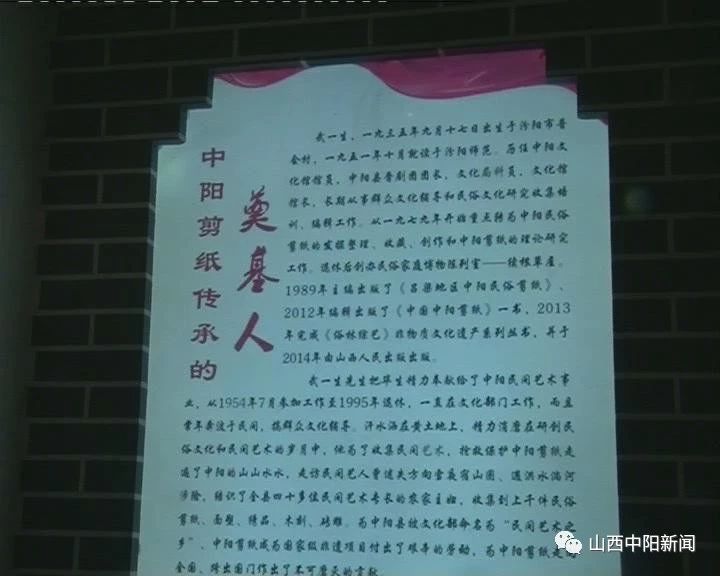 中阳剪纸传承的
奠基人
武一生，一九三五年九月十七日出生于汾阳市普
会村，一九五一年十月就读于汾阳师范。历任中阳文
化馆馆员，中阳县晋剧团团长，文化局科员，文化馆
馆长，长期从事群众文化辅导和民俗文化研究收集培
训、编辑工作。从一九七九年开始重点转为中阳民俗
剪纸的发掘整理、收藏、创作和中阳剪纸的理论研究
工作。退休后创办民俗家庭博物陈列室——续根草庐。
1989年主编出版了《吕梁地区中阳民俗剪纸》，
2012年编辑出版了《中国中阳剪纸》一书，2013
年完成《俗林综艺》非物质文化遗产系列丛书，并于
2014年由山西人民出版出版。
武一生先生把毕生精力奉献给了中阳民间艺术事
业，从1954年7月参加工作至1995年退休，一直在文化部门工作，而且
常年奔波于民间，搞群众文化辅导。汗水洒在黄土地上，精力消磨在研创民
俗文化和民间艺术的岁月中，他为了收集民间艺术，抢救保护中阳剪纸走
遍了中阳的山山水水，走访民间艺人曾迷失方向雪夜宿山圈、遇洪水淌河
涉险，结识了全县四十多位民间艺术专长的农家主妇，收集到上千件民俗
剪纸、面塑、绣品、木刻、砖雕。为中阳县被文化部命名为“民间艺术之
乡”、中阳剪纸成为国家级非遗项目付出了艰辛的劳动，为中阳剪纸走向
全国、跨出国门作出了不可磨灭的贡献
山西中阳新闻